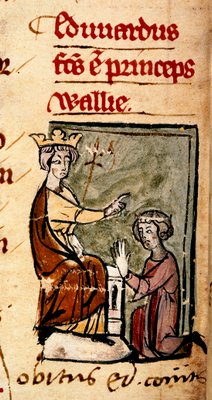 Edwardus
fc̄s ē princeps
Wallie.
obitus Ed. comitis